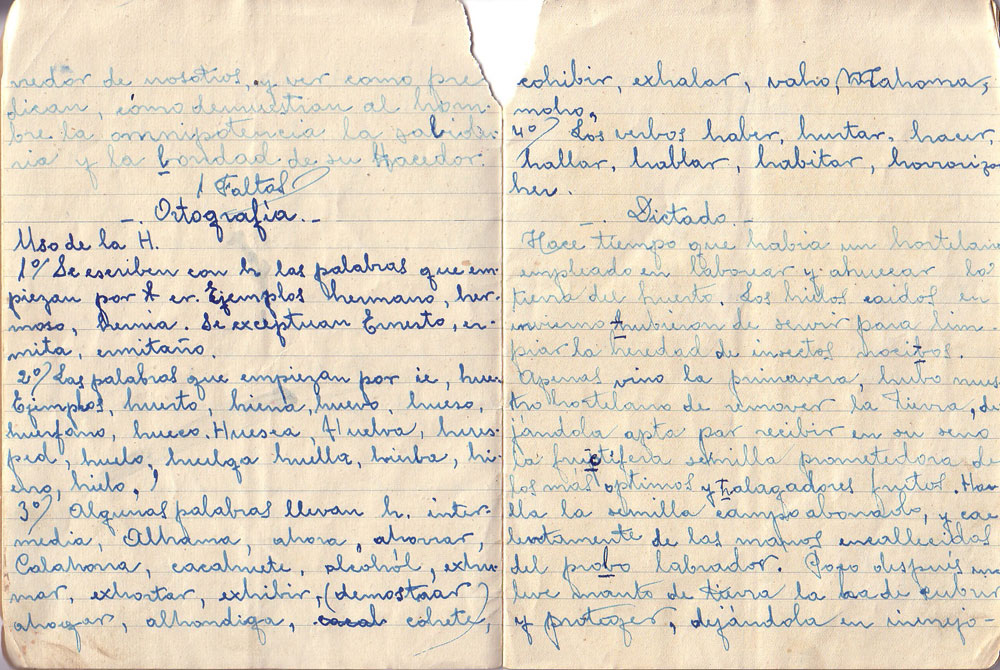 nedor de nosotros, y ver como pre-
dican, cómo demuestran al hom-
bre la omnipotencia la sabidu-
ria y la bondad de su Hacedor.
1 Faltas
-. Ortografía. -
Uso de la H.
1º/ Se escriben con h las palabras que em-
piezan por h er. Ejemplos hermano, her-
moso, Hernia. Se exceptuan Ernesto, er-
mita, ermitaño.
2º/ Las palabras que empiezan por ie, hue
Ejemplos, huerto, hiena, huevo, hueso,
huérfano, hueco. Huesca, Huelva, hues-
ped, huelo, huelga huella, hierba, hi-
elo,
3º/ Algunas palabras llevan h. inter-
media, Alhama, ahora, ahorrar,
Calahorra, cacahuete, alcohól, exhu-
mar, exhortar, exhibir, (demostrar)
ahogar, alhondiga, cohete,
cohibir, exhalar, vaho, Mahoma,
moho,
4º/ Los verbos haber, hurtar, hacer,
hallar, hablar, habitar, horroriza
her.
-. Dictado. -
Hace tiempo que había un hortelano
empleado en laborear y ahuecar la
tierra del huerto. Los hielos caidos en
invierno hubieron de servir para lim-
piar la heredad de insectos nocivos.
Apenas vino la primavera, hubo nues-
tro hortelano de remover la tierra, de
jándola apta par recibir en su seno
la fructífera semilla prometedora de
los mas optimos y halagadores frutos. Ha-
lla la semilla campo abonado, y cae
lentamente de las manos encallecidas
del probo labrador. Poco después un
leve manto de tierra la ha de cubrir
y proteger, dejándola en inmejo-